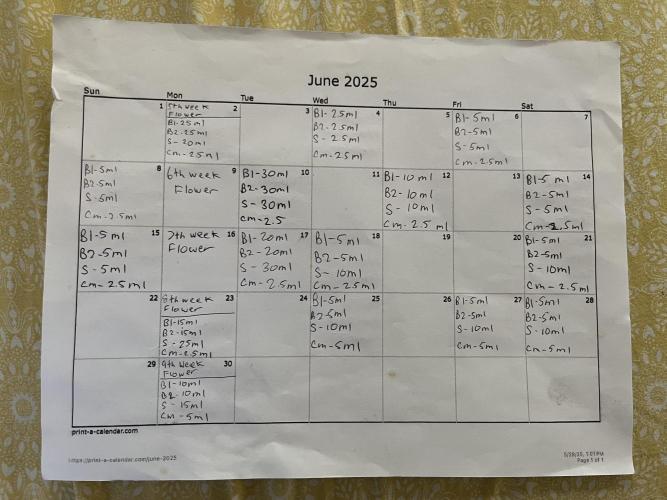 June 2025
Sun Mon Tue Wed Thu Fri Sat
1
5th week 2
Flower
B1-25ml
B2-25ml
S-20ml
Cm-25ml
3
B1-25ml 4
B2-25ml
S-25ml
Cm-25ml
5
B1-5ml 6
B2-5ml
S-5ml
Cm-2.5ml
7
B1-5ml 8
B2-5ml
S-5ml
Cm-2.5ml
6th week 9
Flower
B1-30ml 10
B2-30ml
S-30ml
cm-2.5
11
B1-10ml 12
B2-10ml
S-10ml
Cm-2.5ml
13
B1-5ml 14
B2-5ml
S-5ml
Cm-2.5ml
B1-5ml 15
B2-5ml
S-5ml
Cm-2.5ml
7th week 16
Flower
B1-20ml 17
B2-20ml
S-30ml
Cm-2.5ml
B1-5ml 18
B2-5ml
S-10ml
Cm-25ml
19
20
B1-5ml 21
B2-5ml
S-10ml
Cm-2.5ml
22
8th week 23
Flower
B1-15ml
B2-15ml
S-25ml
Cm-2.5ml
24
B1-5ml 25
B2-5ml
S-10ml
Cm-5ml
26
B1-5ml 27
B2-5ml
S-10ml
Cm-5ml
B1-5ml 28
B2-5ml
S-10ml
Cm-5ml
29
9th week 30
Flower
B1-10ml
B2-10ml
S-15ml
CM-5ml
print-a-calendar.com
https://print-a-calendar.com/june-2025
5/28/25, 1:01 PM
Page 1 of 1